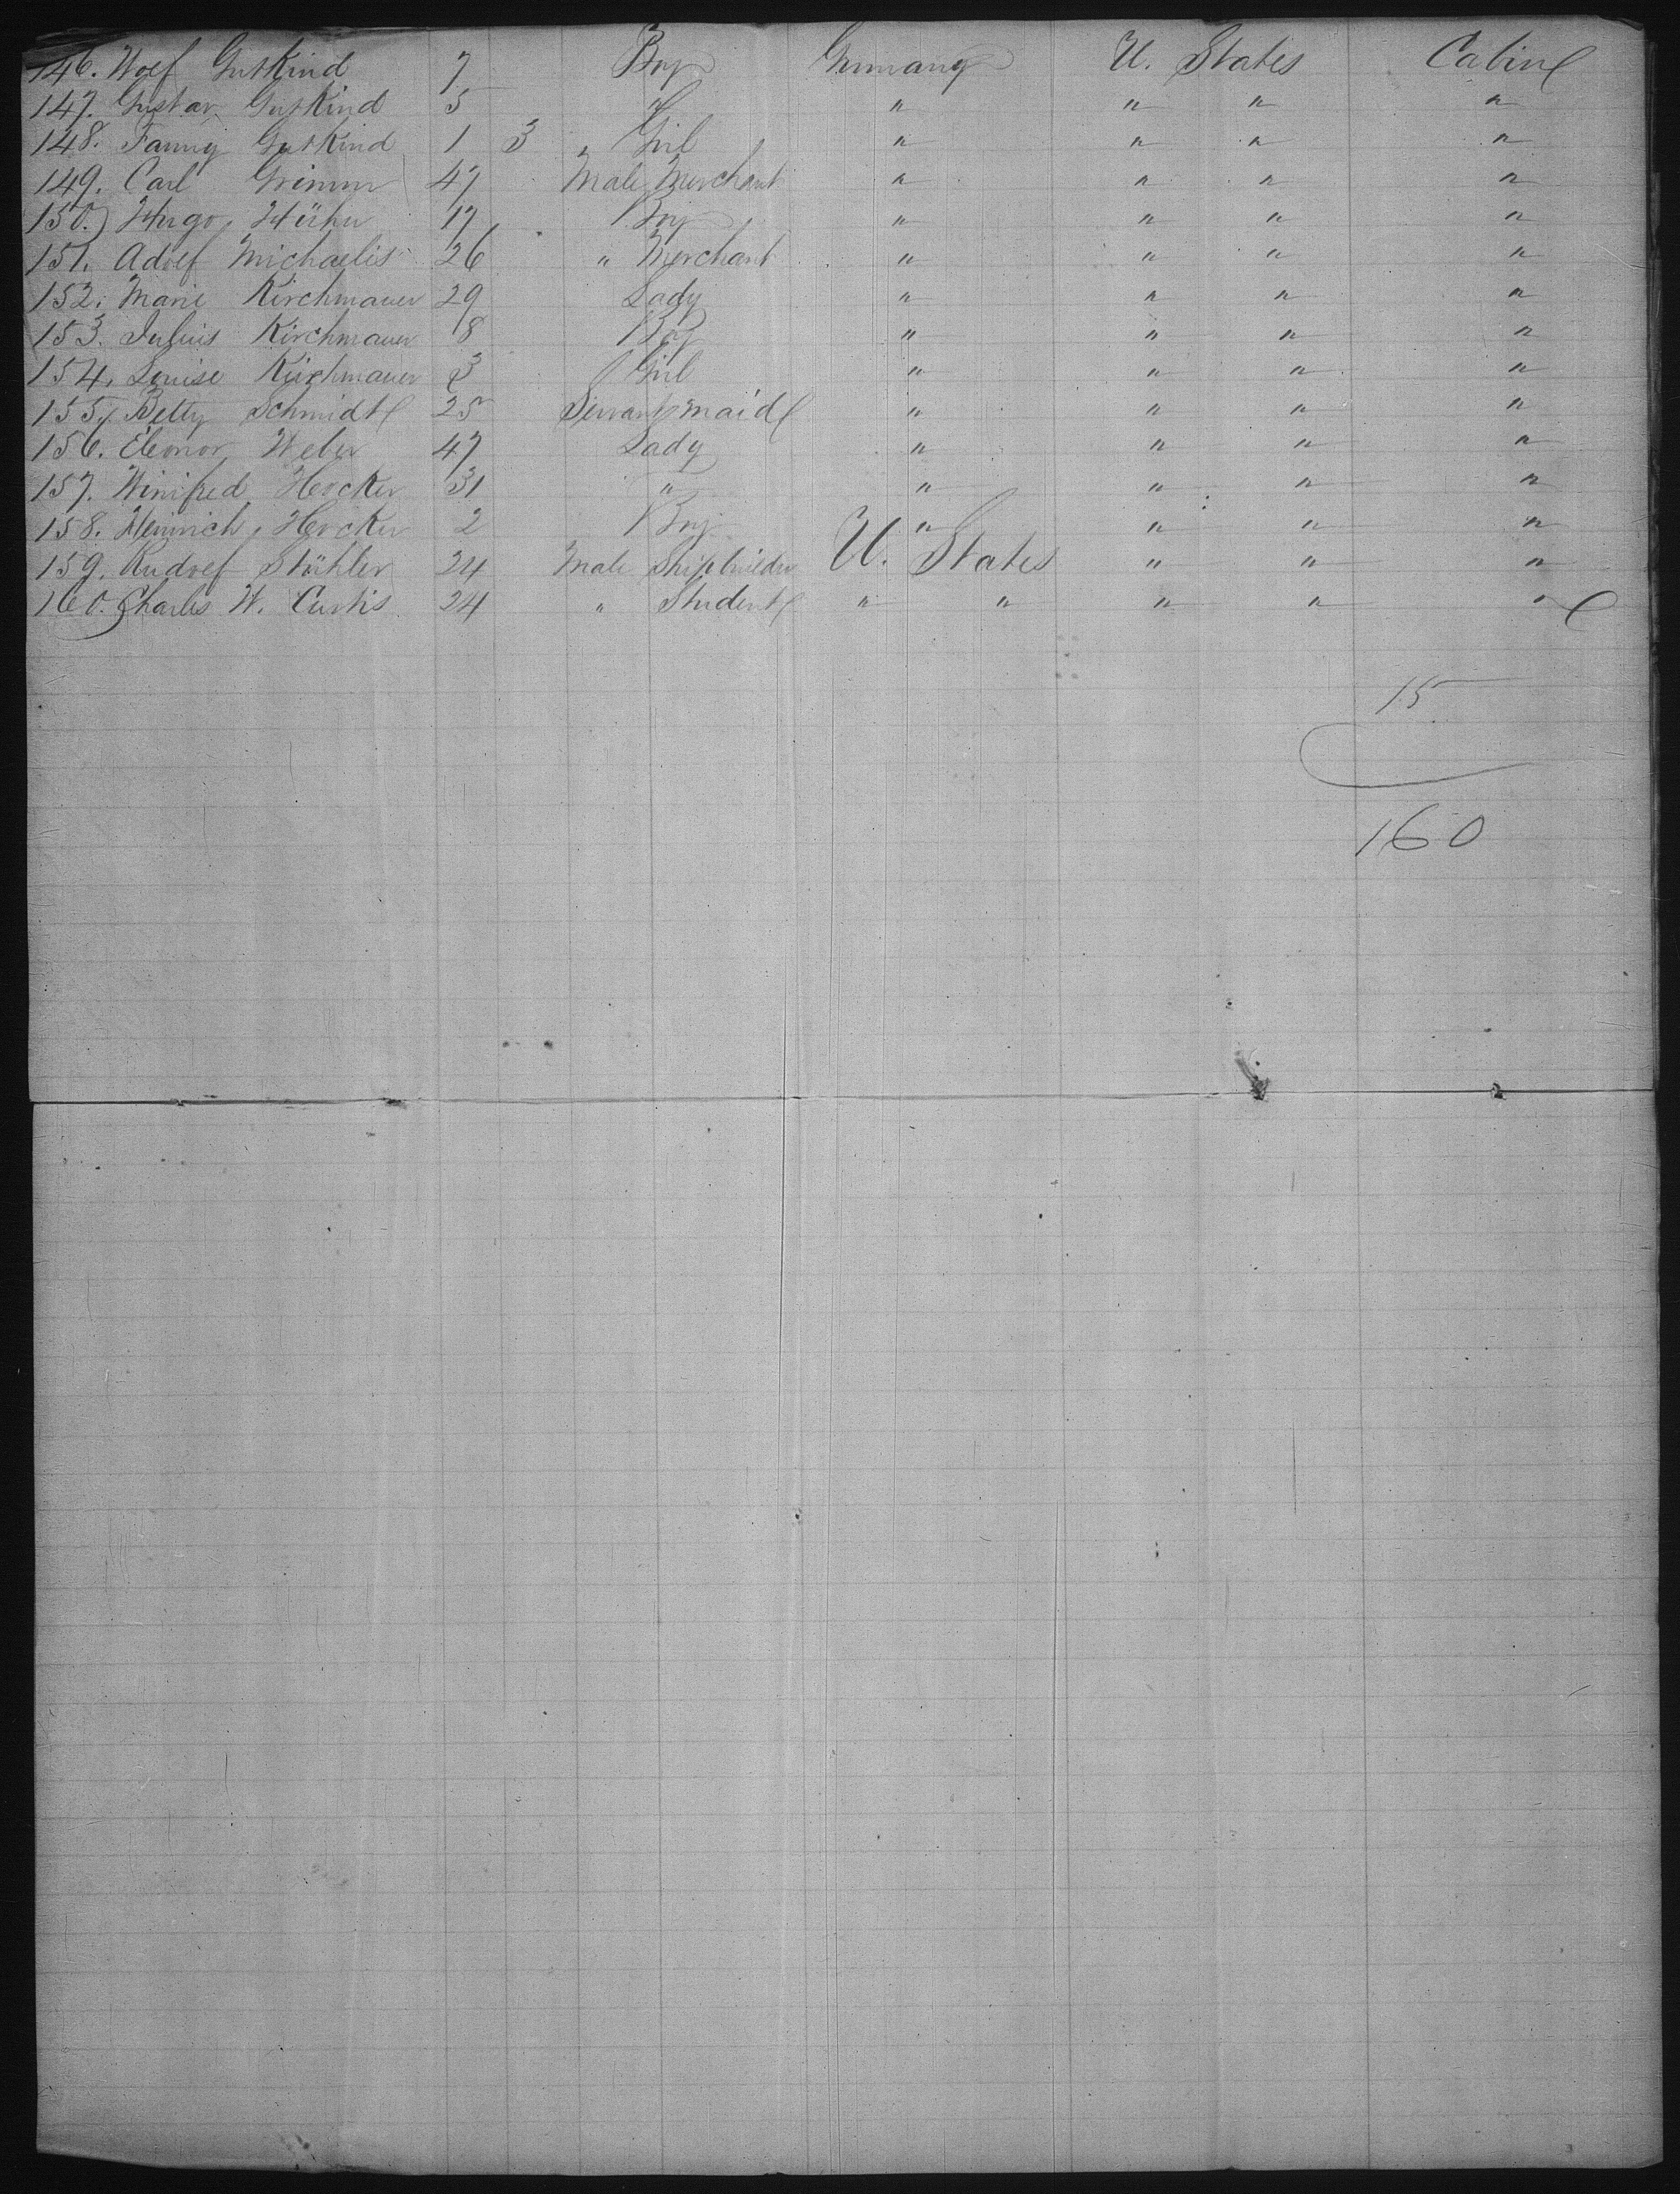 146. Wolf Gutkind 7 Boy Germany U. States Cabin
147. Gustav Gutkind 5 " " " " "
148. Fanny Gutkind 1 3 Girl " " " "
149. Carl Grimm 47 Male Merchant " " " "
150. Hugo Hühn 17 Boy " " " "
151. Adolf Michaelis 26 " Merchant " " " "
152. Marie Kirchmauer 29 Lady " " " "
153. Julius Kirchmauer 8 Boy " " " "
154. Louise Kirchmauer 3 Girl " " " "
155. Betty Schmidt 25 Servant maid " " " "
156. Eleonor Weber 47 Lady " " " "
157. Winifred Hercker 31 " " " " "
158. Heinrich Hercker 2 Boy " " " "
159. Rudolf Stähler 24 Male Shipbuilder U. States " " "
160. Charles W. Curtis 24 " Student " " " " "
15
160